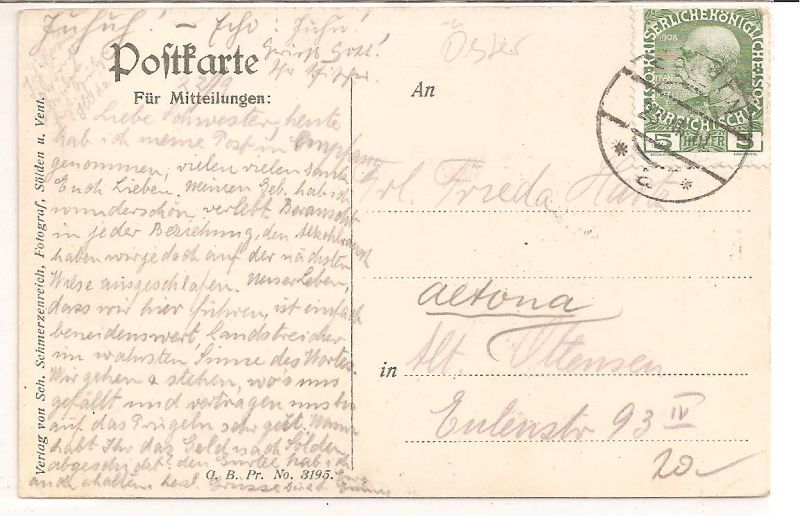 Juhuh! – Echo: Juhu!
Grüß Gott!
Postkarte
Für Mitteilungen:
2/9
Liebe Schwester, heute
hab ich meine Post in Empfang
genommen, vielen vielen Dank
Euch Lieben. Meinen Geb. hab ich
wunderschön verlebt. Berauscht
in jeder Beziehung, den Alkoholrausch
haben wir jedoch auf der nächsten
Wiese ausgeschlafen. Unser Leben,
dass wir hier führen, ist einfach
beneidenswert. Landstreicher
im wahrsten Sinne des Wortes.
Wir gehen & stehen, wo's uns
gefällt und vertragen uns bis
auf das Prügeln sehr gut. Wann
habt Ihr das Geld nach Sölden
abgeschickt? den Gürtel hab ich
auch erhalten. herzl. Grüsse
Verlag von Sch. Schmerzenreich, Fotograf, Sölden u. Vent.
G. B. Pr. No. 3195.
Öster
An
Frl. Frieda
Altona
in
Alt. Ottensen
Eulenstr 93 IV
20-
KAISERLICHE KÖNIGLICHE
1908
5 HELLER 5